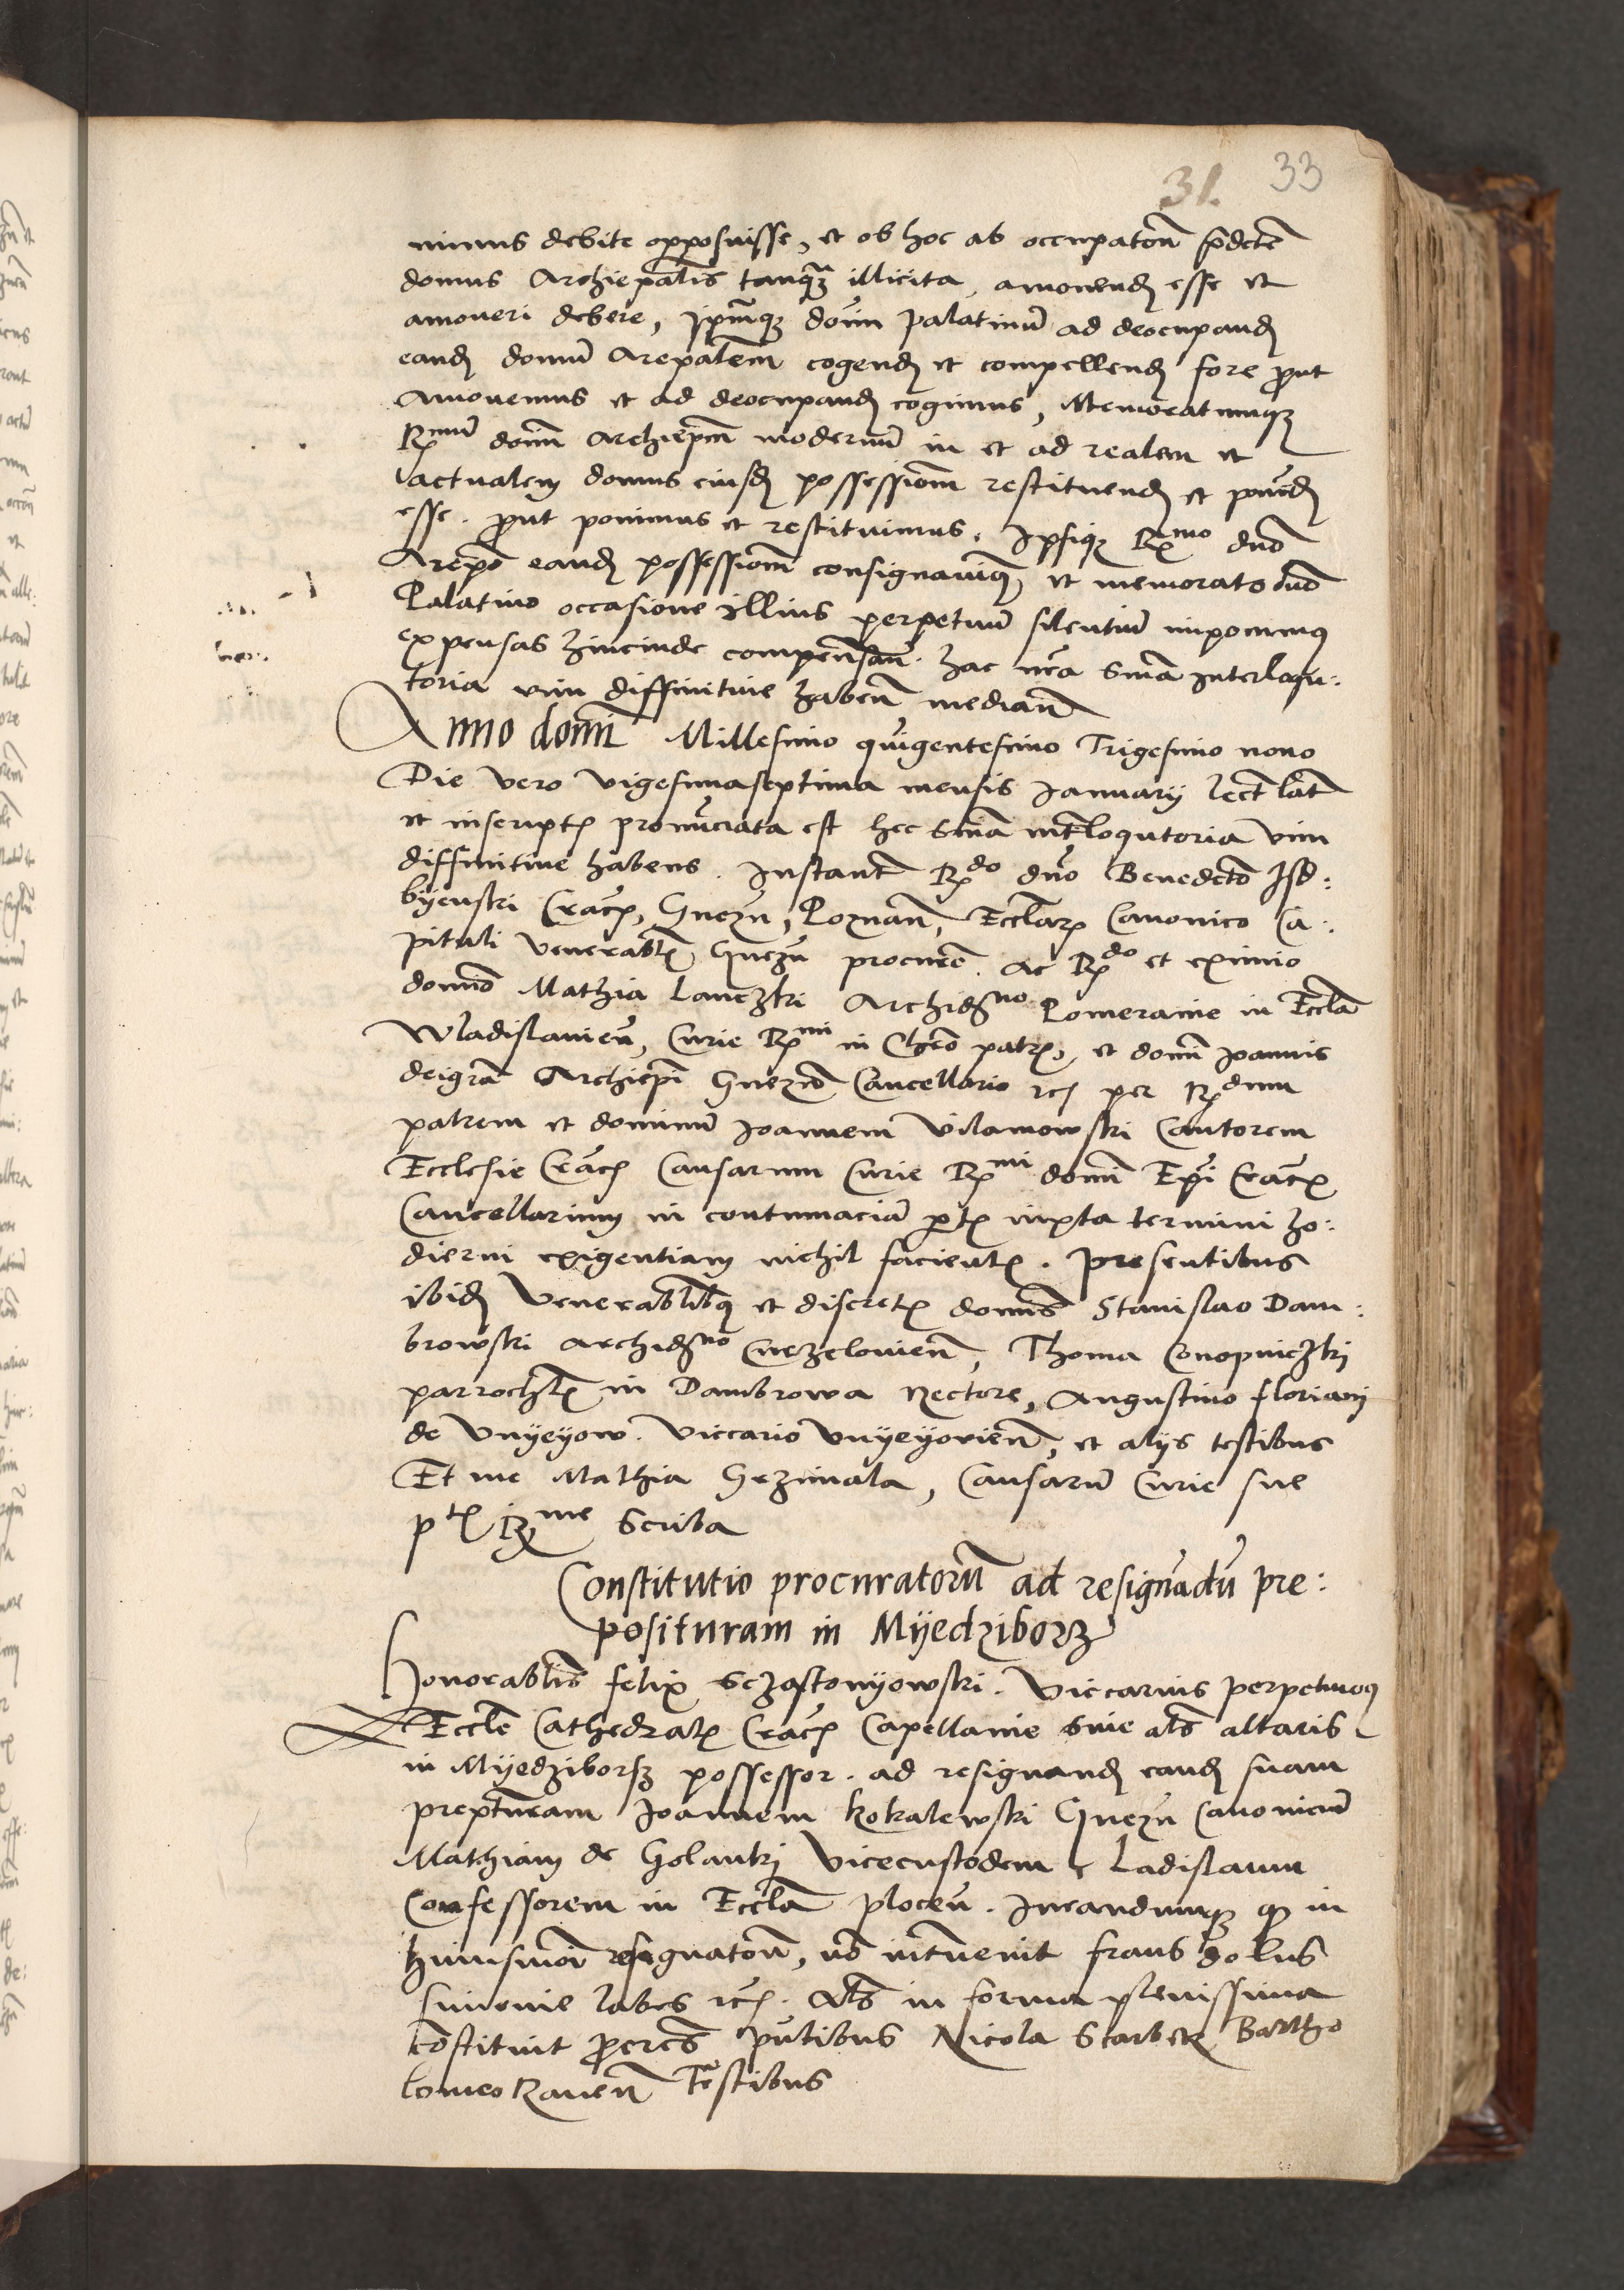 31. 33
minus debite opposuisse, et ob hoc ab occupatoñ p̃dcte
domus Archiep̃alis tanq̃ illicita, amonend esse et
amoveri debere, Ip̃mq3 dom̃ palatinũ ad deocupand
eand domũ Arep̃alem cogend et compellend fore p̃ut
Amovemus et ad deocupand cogimus, Memoratumq3
R^mũ dom̃ Archiep̃m modernũ in et ad realem et
actualem domus eiusd possessionẽ restituend et ponẽd
esse. p̃ut ponimus et restituimus. Ipsiq3 R^mo dño
Arep̃o eand possessionẽ consignamus et memorato dño
Palatino occasione illius perpetuũ silentiũ imponimus
expensas hincinde compensañ. hac nrã sniã Interloqu:
toria vim diffinitive habeñ mediañ
Anno domi Millesimo quigentesimo Trigesimo nono
Die vero vigesimaseptima mensis Ianuarij lect lat
et inscript pronũciata est hec sniã int̃loqutoria vim
diffinitive habens. Instant R^do dño Benedicto Isd:
byenski Crac, Gnezñ, Poznañ, Eccl̃ar Canonico Ca:
pituli venerabl Gnezñ procure. ac R^do et eximio
domino Mathia Lanczki Archid^no Pomeranie in Eccl̃a
Wladislavieñ, Curie R^mi in Chr̃o patr, et domi Joannis
deigrã Archiep̃i Gnezñ Cancellario etc per R^dum
patrem et dominũ Joannem Vilamowski Cantorem
Ecclesie Crac Causarum Curie R^mi domi Ep̃i Crac
Cancellarium in contumaciã pt iuxta termini ho:
dierni exigentiam nichil facient. presentibus
ibid Venerabilibus et discret domis Stanislao Dam:
browski archid^no Cuczelovieñ, Thoma Conopniczki
parrochl in Dambrowa Rectore, Augustino floriani
de Vnyeyow. Viccario Vnyeyovieñ, et alijs testibus
Et me Mathia Grzimala, Causarũ Curie sue
p^t R^me Scriba
Constitutio procuratorũ ad resignãdũ pre:
posituram in Myedziborz
Honorabilis felix Sczastonyowski. Viccarius perpetuus
Eccl̃e Cathedral Crac Capellanie sive als altaris
in Myedziborz possessor. ad resignand eand suam
prep̃turam Joannem Kokalewski Gnezñ Canonicũ
Mathiam de Golanki Vicecustodem Ladislaum
Confessorem in Eccl̃a Ploceñ. Iurandumq3 q in
huiusmõi resignatoñ, nõ intervenit fraus dolus
simonie labes etc. Als in forma plenissima
cõstituit p̃cres pñtibus Nicola Scarbek Bartho
lomeo Raveñ Testibus